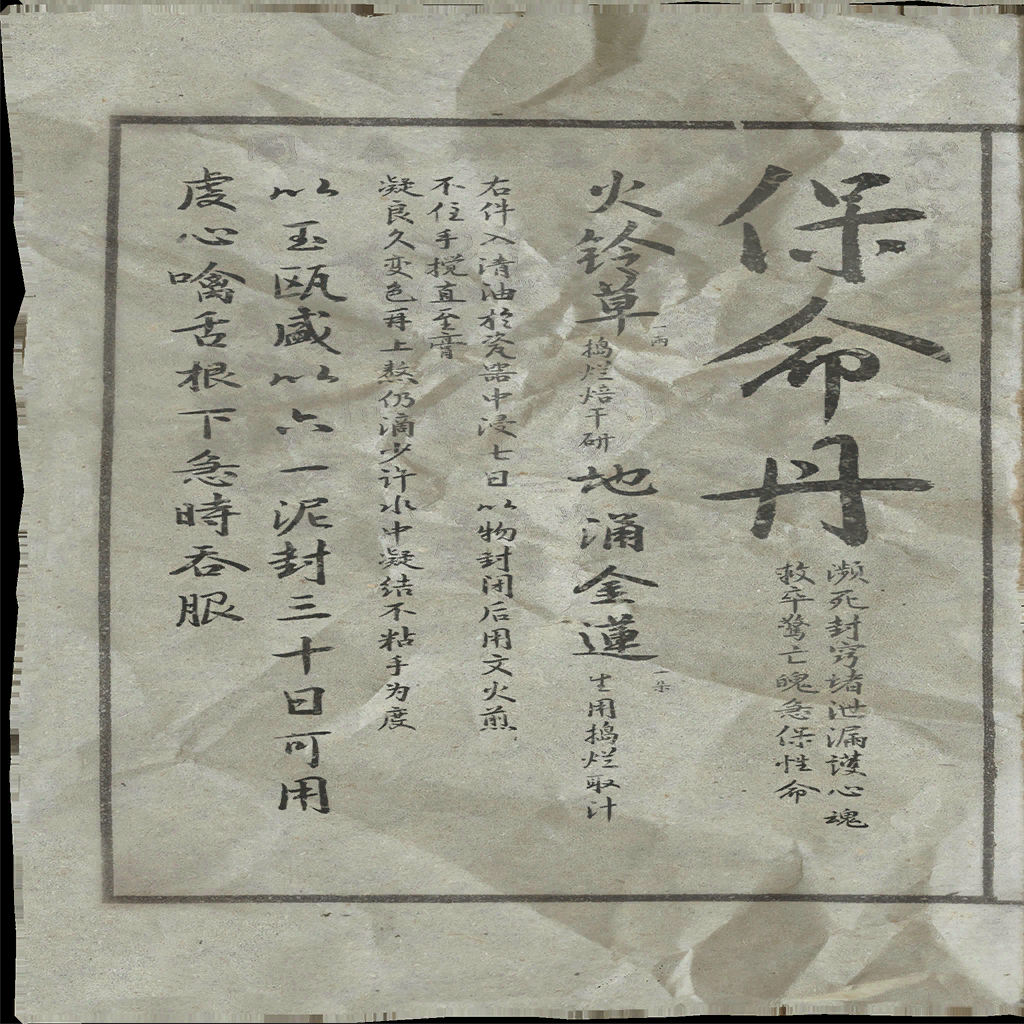 保命丹
濒死封窍堵泄漏護心魂
救卒驚亡魄急保性命
火铃草
一两
捣烂焙干研
地涌金蓮
一朵
生用捣烂取汁
右件入清油於瓷器中浸七日以物封闭后用文火煎
不住手搅直至膏
凝良久变色再上熬仍滴少许水中凝结不粘手为度
以玉瓯盛以六一泥封三十日可用
虔心噙舌根下急時吞服